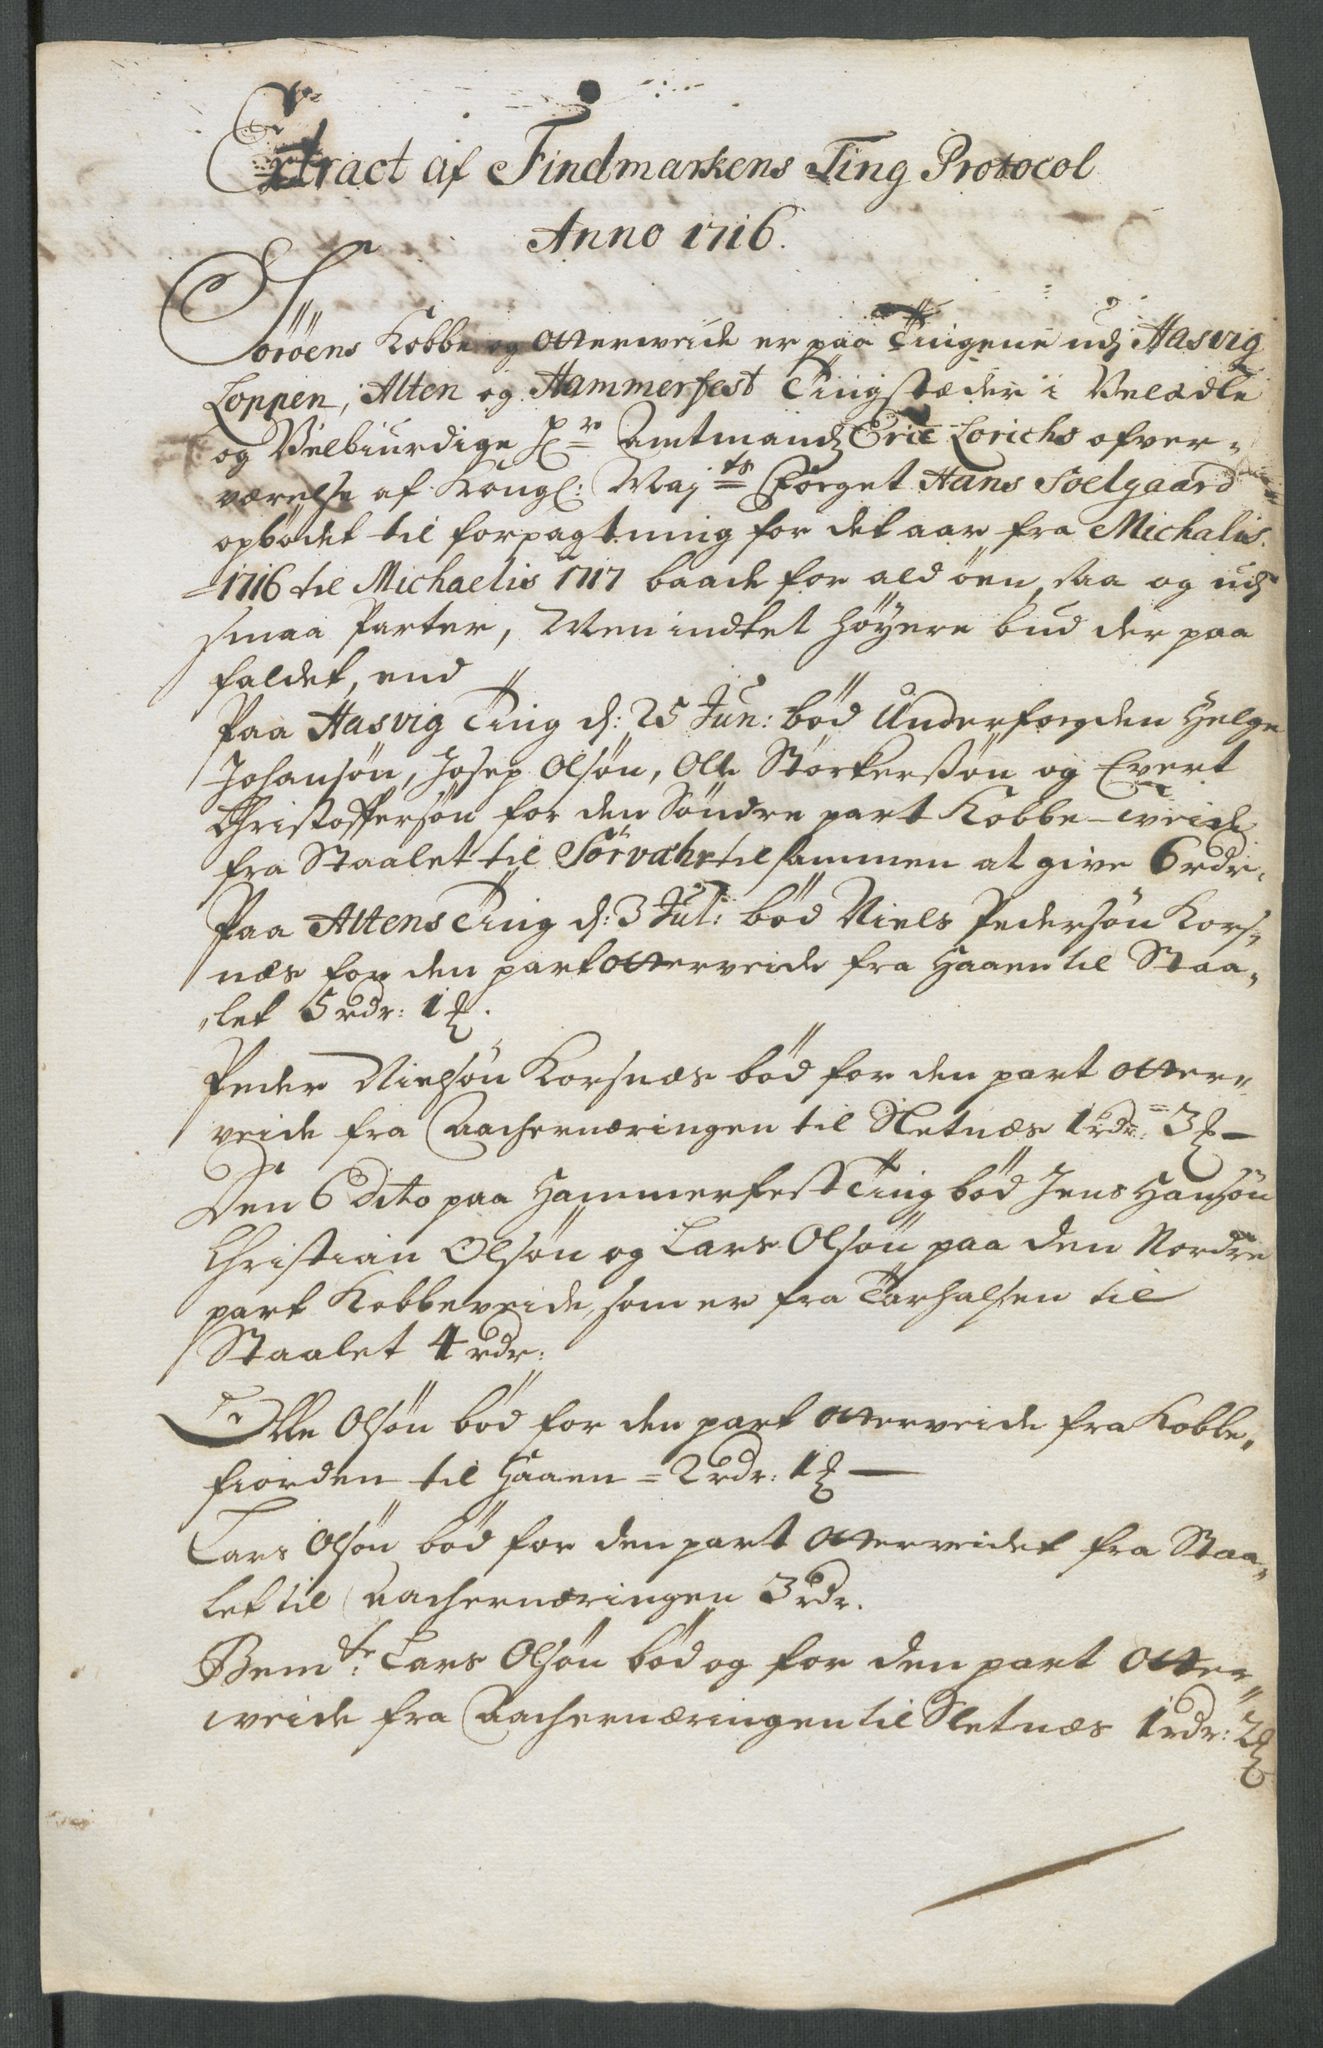 Extract af Findmarkens Ting Protocol
Anno 1716.
Söröens Kobbe og Otterveide er paa Tingene udj Hasvig
Loppen, Alten og Hammerfest Tingstæder i Velædle
og Velbiurdige Hr Amtmand Eric Lorichs ofver-
værelse af Kongl: Majts Foget Hans Soelgaard
opbödet til forpagtning for det aar fra Michalis.
1716 til Michaelis 1717 baade for ald öen, saa og udj
smaa Parter, Men indtet höyere bud der paa
faldet, end
Paa Hasvig Ting d: 25 Jun: böd Underfogden Helge
Johansön, Josep Olsön, Olle Störkersön og Evert
Christoffersön for den Söndre part Kobbe-weide
fra Staalet til Sörvæhr tilsammen at give 6 rdr.
Paa Altens Ting d: 3 Jul: böd Niels Pedersön Kors-
næs for den part Otterveide fra Haaen til Staa-
let 5 rdr: 1 ℔.
Peder Nielsön Korsnæs böd for den part Otter-
veide fra Aachernæringen til Sletnæs 1 rdr: 3 ℔ —
Den 6 Dito paa Hammerfest Ting böd Jens Hansön
Christian Olsön og Lars Olsön paa den Nordre
part Kobbeveide, som er fra Tarhalsen til
Staalet 4 rdr:
Olle Olsön böd for den part Otterveide fra Kobbe-
fiorden til Haaen = 2 rdr: 1 ℔ —
Lars Olsön böd for den part Otterveidet fra Staa-
let til Aachernæringen 3 rdr.
Bemte: Lars Olsön böd og for den part Otter-
weide fra Aachernæringen til Sletnæs 1 rdr: 2 ℔